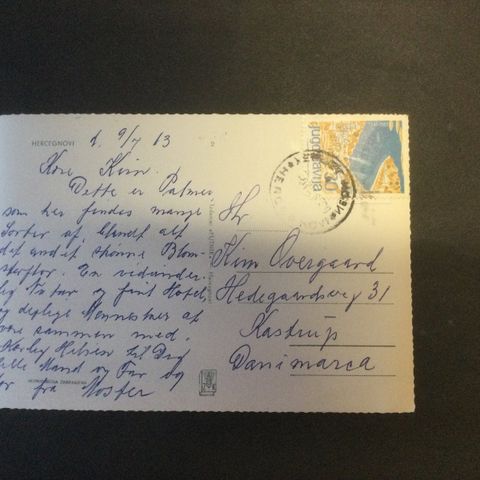 HERCEGNOVI
d. 9/7 63
2
Kære Kim.
Dette er Palmer
som her findes mange
Sorter af, blandt alt
det andet skønne Blom-
sterflor. En vidunder-
lig Natur og fint Hotel
og dejlige Mennesker at
være sammen med.
Kærlig Hilsen til Dig
lille Mand og Far og
Mor fra Moster
jugoslavija
30
Hr.
Kim Overgaard
Hedegaardsvej 31
Kastrup
Danimarca